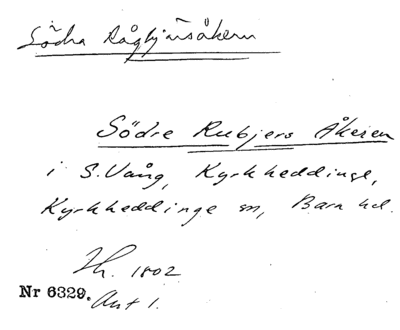 Södra Rågbjärsåkern
Södre Rubjers Åkeren
i S. Vång, Kyrkheddinge,
Kyrkheddinge sn, Bara hd.
Zh. 1802
Nr 6329. Akt 1.